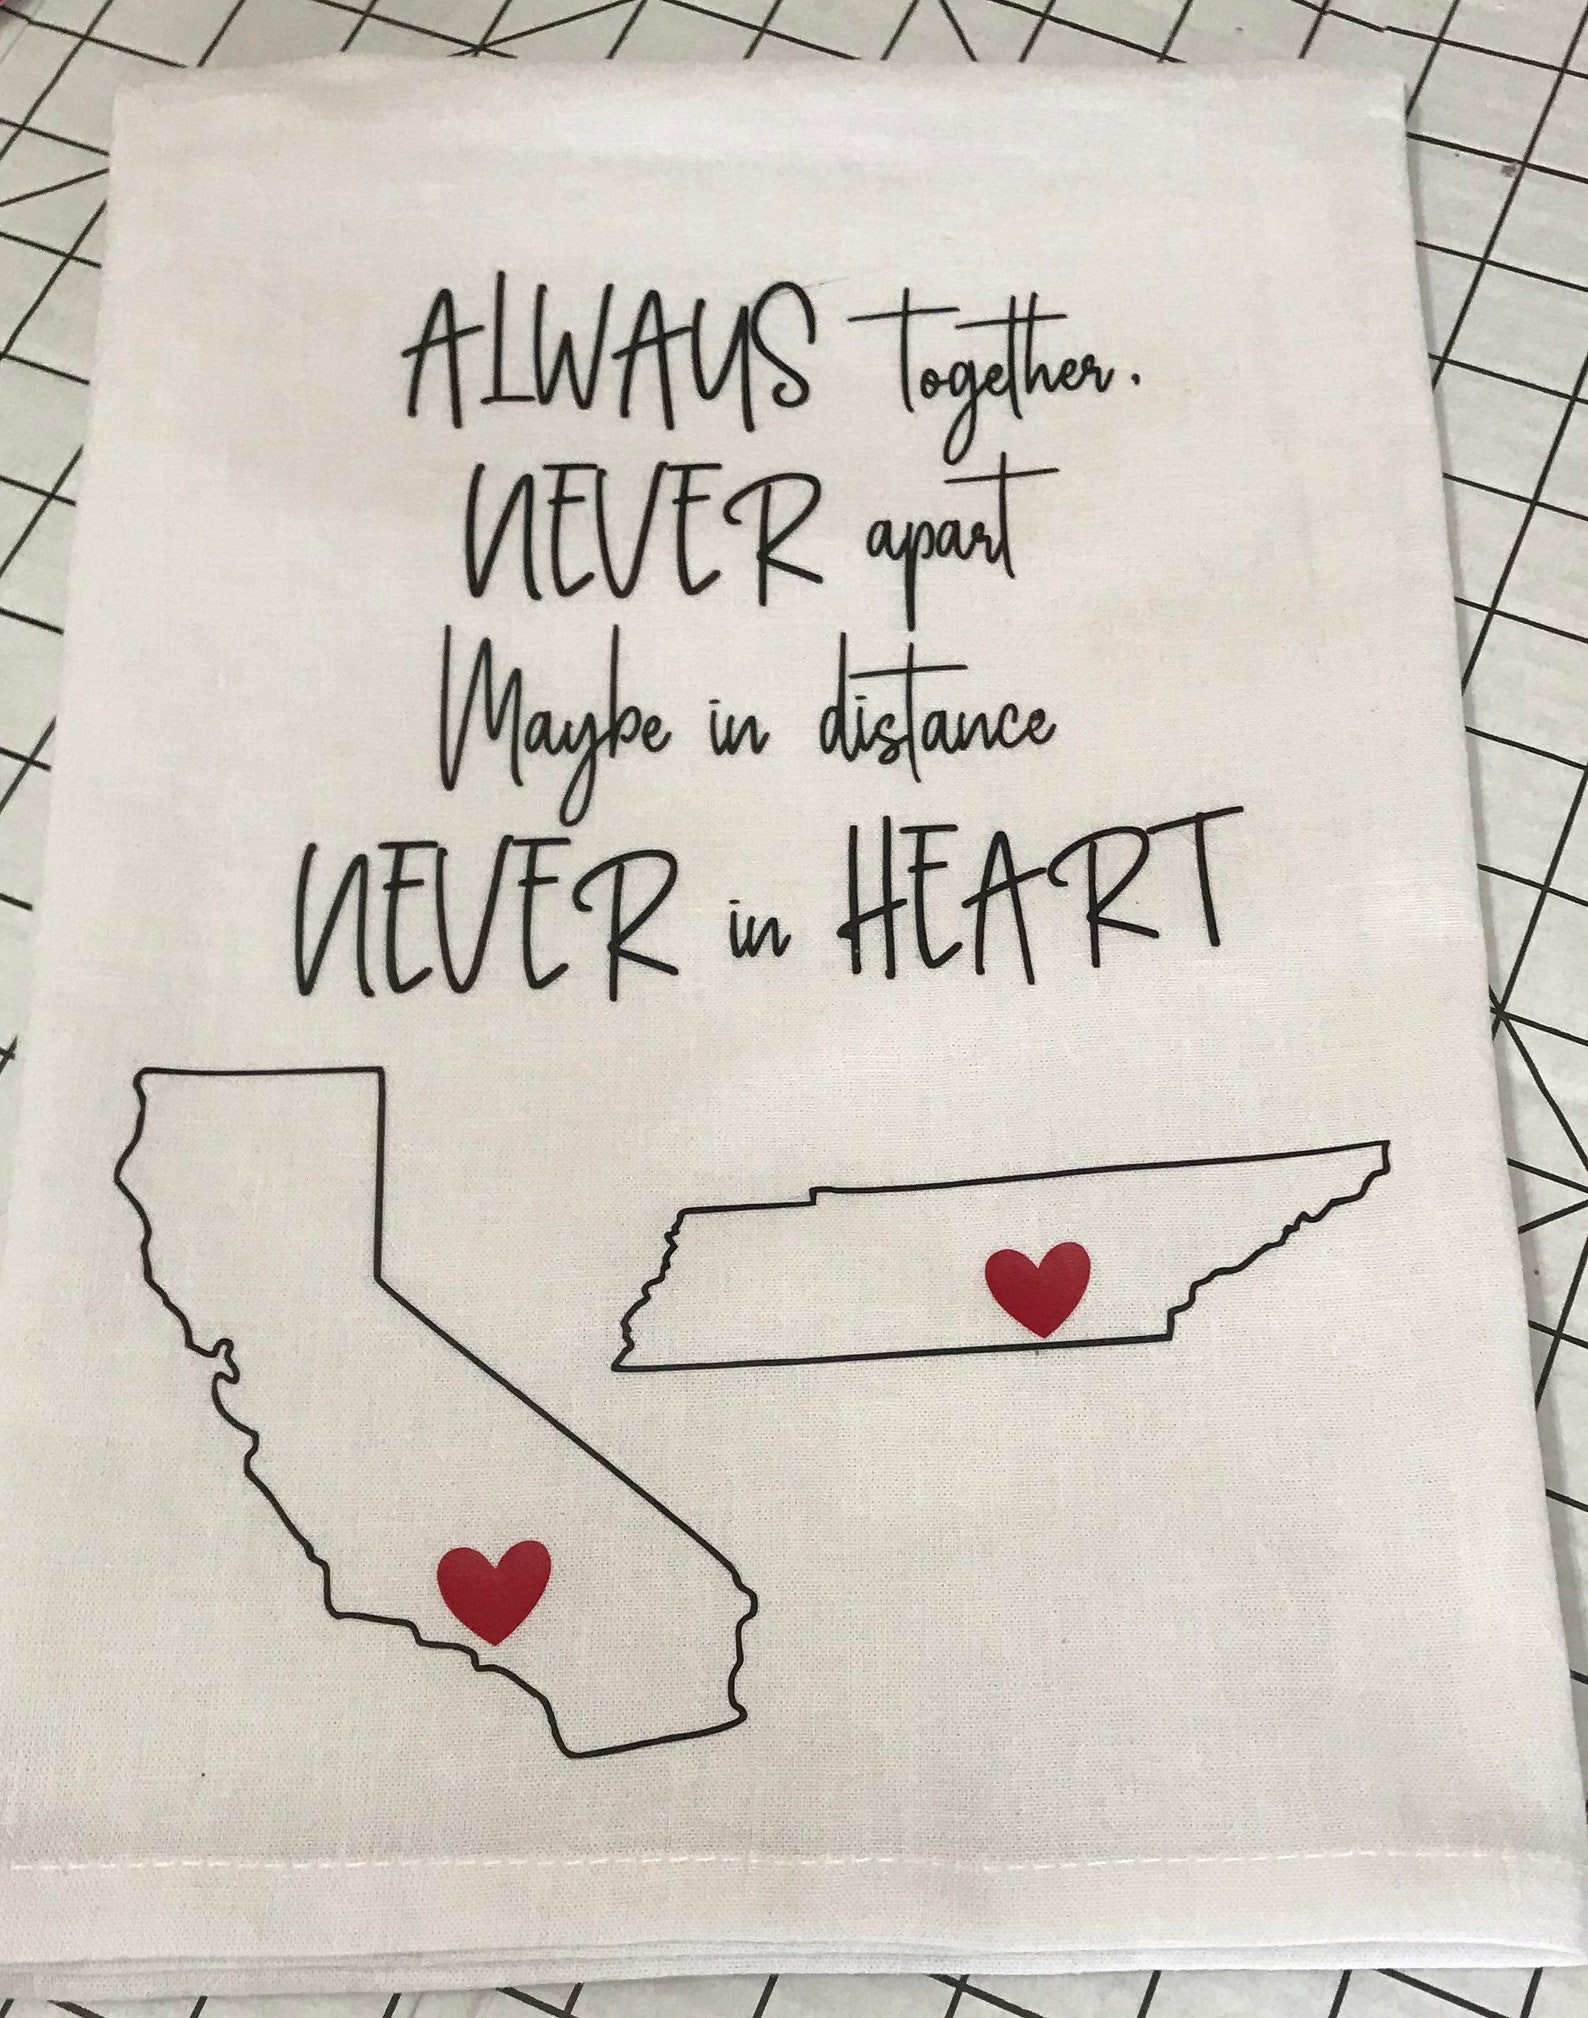 ALWAYS together.
NEVER apart
Maybe in distance
NEVER in HEART